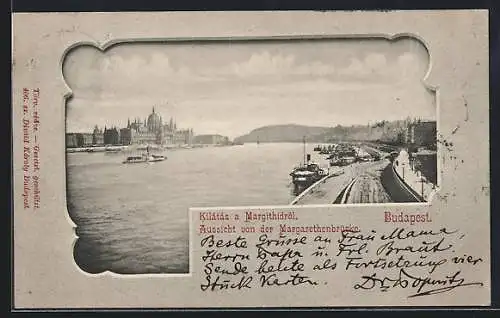 Törv. védve. — Gesetzl. geschützt.
406. sz. Divald Károly Budapest.
Kilátás a Margithidról. Budapest.
Aussicht von der Margarethenbrücke.
Beste Grüsse an Frau Mama,
Herrn Papa u. Frl. Braut.
Sende heute als Fortsetzung vier
Stück Karten.
Dr.